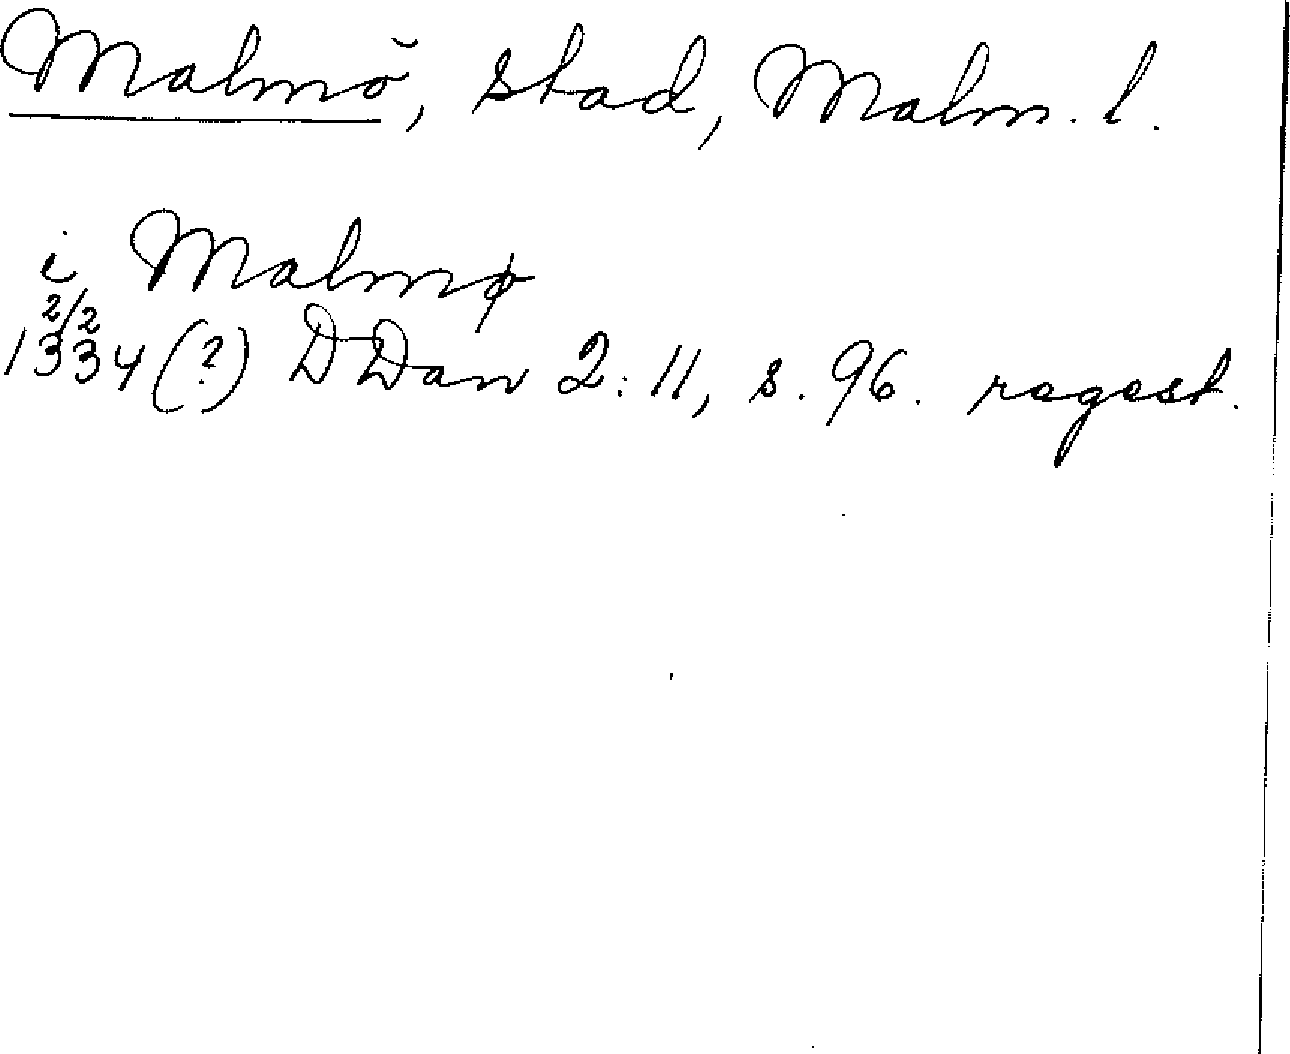 Malmö, stad, Malm. l.
i Malmø
2/2
1334 (?) DDan 2: 11, s. 96. regest.